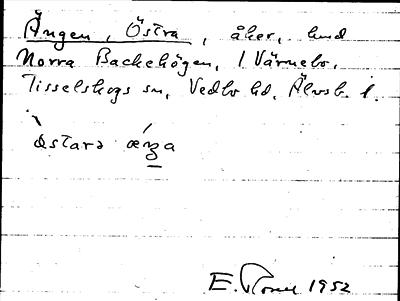 Ängen, Östra, åker, hmd
Norra Backehögen, 1 Värnebo,
Tisselskogs sn, Vedbo hd, Älvsb. l.
östarə æŋa
E. 1952